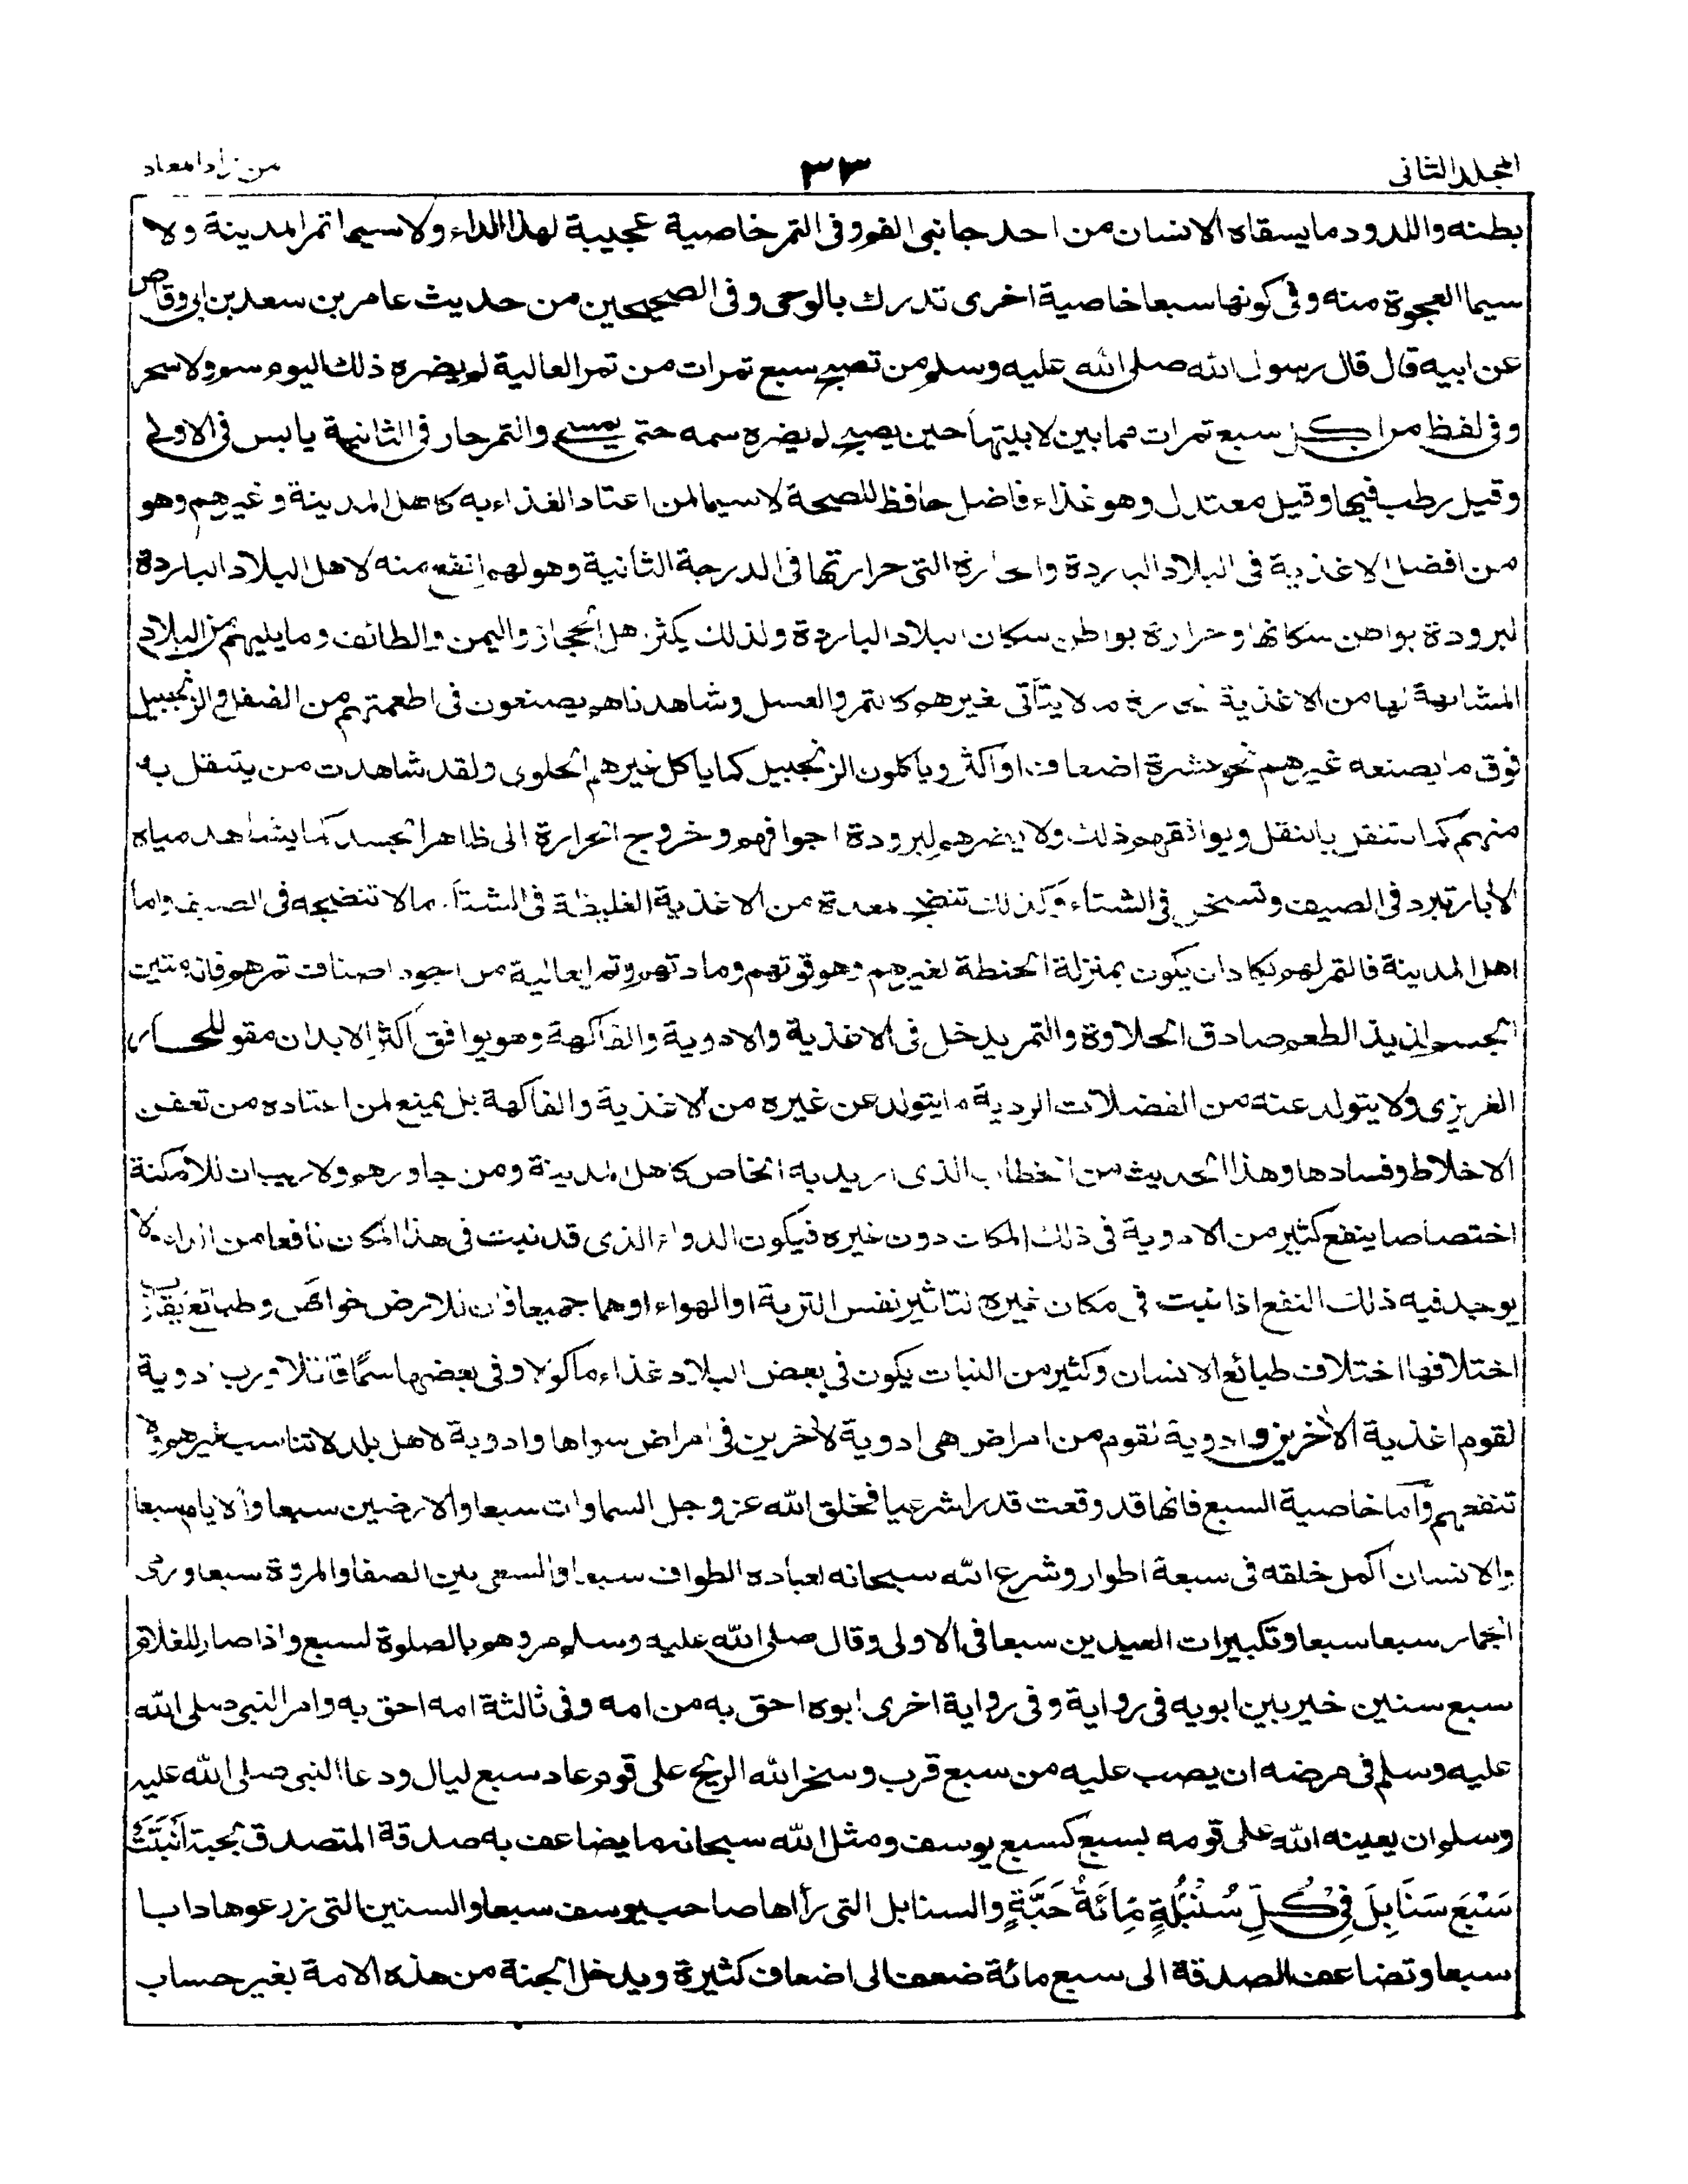 المجلد الثانى
٣٣
من زاد المعاد
بطنه واللدود مايسقاه الانسان من احد جانبى الفم وفى التمر خاصية عجيبة لهذا الداء ولاسيما تمر المدينة ولا
سيما العجوة منه وفى كونها سبعا خاصية اخرى تدرك بالوحى وفى الصحيحين من حديث عامر بن سعد بن ابى وقاص
عن ابيه قال قال رسول الله صلى الله عليه وسلم من تصبح سبع تمرات من تمر العالية لم يضره ذلك اليوم سم ولا سحر
وفى لفظ من اكل سبع تمرات مما بين لابيتها حين يصبح لم يضره سمه حتى يمسى والتمر حار فى الثانية يابس فى الاولى
وقيل رطب فيها وقيل معتدل وهو غذاء فاضل حافظ للصحة لا سيما لمن اعتاد الغذاء به كاهل المدينة وغيرهم وهو
من افضل الاغذية فى البلاد الباردة والحارة التى حرارتها فى الدرجة الثانية وهو لهم انفع منه لاهل البلاد الباردة
لبرودة بواطن سكانها وحرارة بواطن سكان البلاد الباردة ولذلك يكثر اهل الحجاز واليمن والطائف ومايليهم من البلاد
المشابهة لها من الاغذية الحارة ما لا يتأتى لغيرهم كالتمر والعسل وشاهدناهم يصنعون فى اطعمتهم من الفلفل والزنجبيل
فوق ما يصنعه غيرهم نحو عشرة اضعاف او اكثر وياكلون الزنجبيل كما ياكل غيرهم الحلوى ولقد شاهدت من يتنقل به
منهم كما يتنقل بالنقل ويوافقهم ذلك ولا يضرهم لبرودة اجوافهم وخروج الحرارة الى ظاهر الجسد كما يشاهد مياه
الابار تبرد فى الصيف وتسخن فى الشتاء وكذلك تنضج معدة من الاغذية الغليظة فى الشتاء مالا تنضجه فى الصيف واما
اهل المدينة فالتمر لهم يكاد ان يكون بمنزلة الحنطة لغيرهم وهو قوتهم ومادتهم وتمر العالية من اجود اصناف تمرهم فانه متين
الجسم لذيذ الطعم صادق الحلاوة والتمر يدخل فى الاغذية والادوية والفاكهة وهو يوافق اكثر الابدان مقو للحار
الغريزى ولا يتولد عنه من الفضلات الردية ما يتولد عن غيره من الاغذية والفاكهة بل يمنع لمن اعتاده من تعفن
الاخلاط وفسادها وهذا الحديث من الخطاب الذى اريد به الخاص كاهل المدينة ومن جاورهم ولا ريب ان للامكنة
اختصاصا ينفع كثير من الادوية فى ذلك المكان دون غيره فيكون الدواء الذى قد نبت فى هذا المكان نافعا من الداء ولا
يوجد فيه ذلك النفع اذا نبت فى مكان غيره لتاثير نفس التربة او الهواء او هما جميعا فان للارض خواص وطبائع يقارب
اختلافها اختلاف طبائع الانسان وكثير من النبات يكون فى بعض البلاد غذاء ماكولا وفى بعضها سمًا قاتلا ورب ادوية
لقوم اغذية لاخرين وادوية لقوم من امراض هى ادوية لاخرين فى امراض سواها وادوية لاهل بلد لا تناسب غيرهم ولا
تنفعهم وآما خاصية السبع فانها قد وقعت قدرا شرعيا فخلق الله عز وجل السماوات سبعا والارضين سبعا والايام سبعا
والانسان اكمل خلقه فى سبعة اطوار وشرع الله سبحانه لعباده الطواف سبعا والسعى بين الصفا والمروة سبعا ورمى
الجمار سبعا سبعا وتكبيرات العيدين سبعا فى الاولى وقال صلى الله عليه وسلم مروهم بالصلوة لسبع واذا صار للغلام
سبع سنين خير بين ابويه فى رواية وفى رواية اخرى ابوه احق به من امه وفى ثالثة امه احق به وامر النبى صلى الله
عليه وسلم فى مرضه ان يصب عليه من سبع قرب وسخر الله الريح على قوم عاد سبع ليال ودعا النبى صلى الله عليه
وسلم ان يعينه الله على قومه بسبع كسبع يوسف ومثل الله سبحانه ما يضاعف به صدقة المتصدق بحبة اَنْبَتَتْ
سَبْعَ سَنَابِلَ فِىْ كُلِّ سُنْبُلَةٍ مِّائَةُ حَبَّةٍ والسنابل التى رأاها صاحب يوسف سبعا والسنين التى زرعوها دابا
سبعا وتضاعف الصدقة الى سبع مائة ضعف الى اضعاف كثيرة ويدخل الجنة من هذه الامة بغير حساب